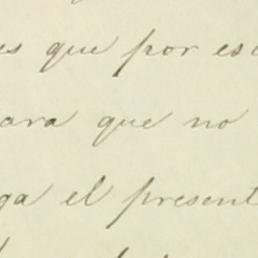 es que por es
ara que no
ga el present